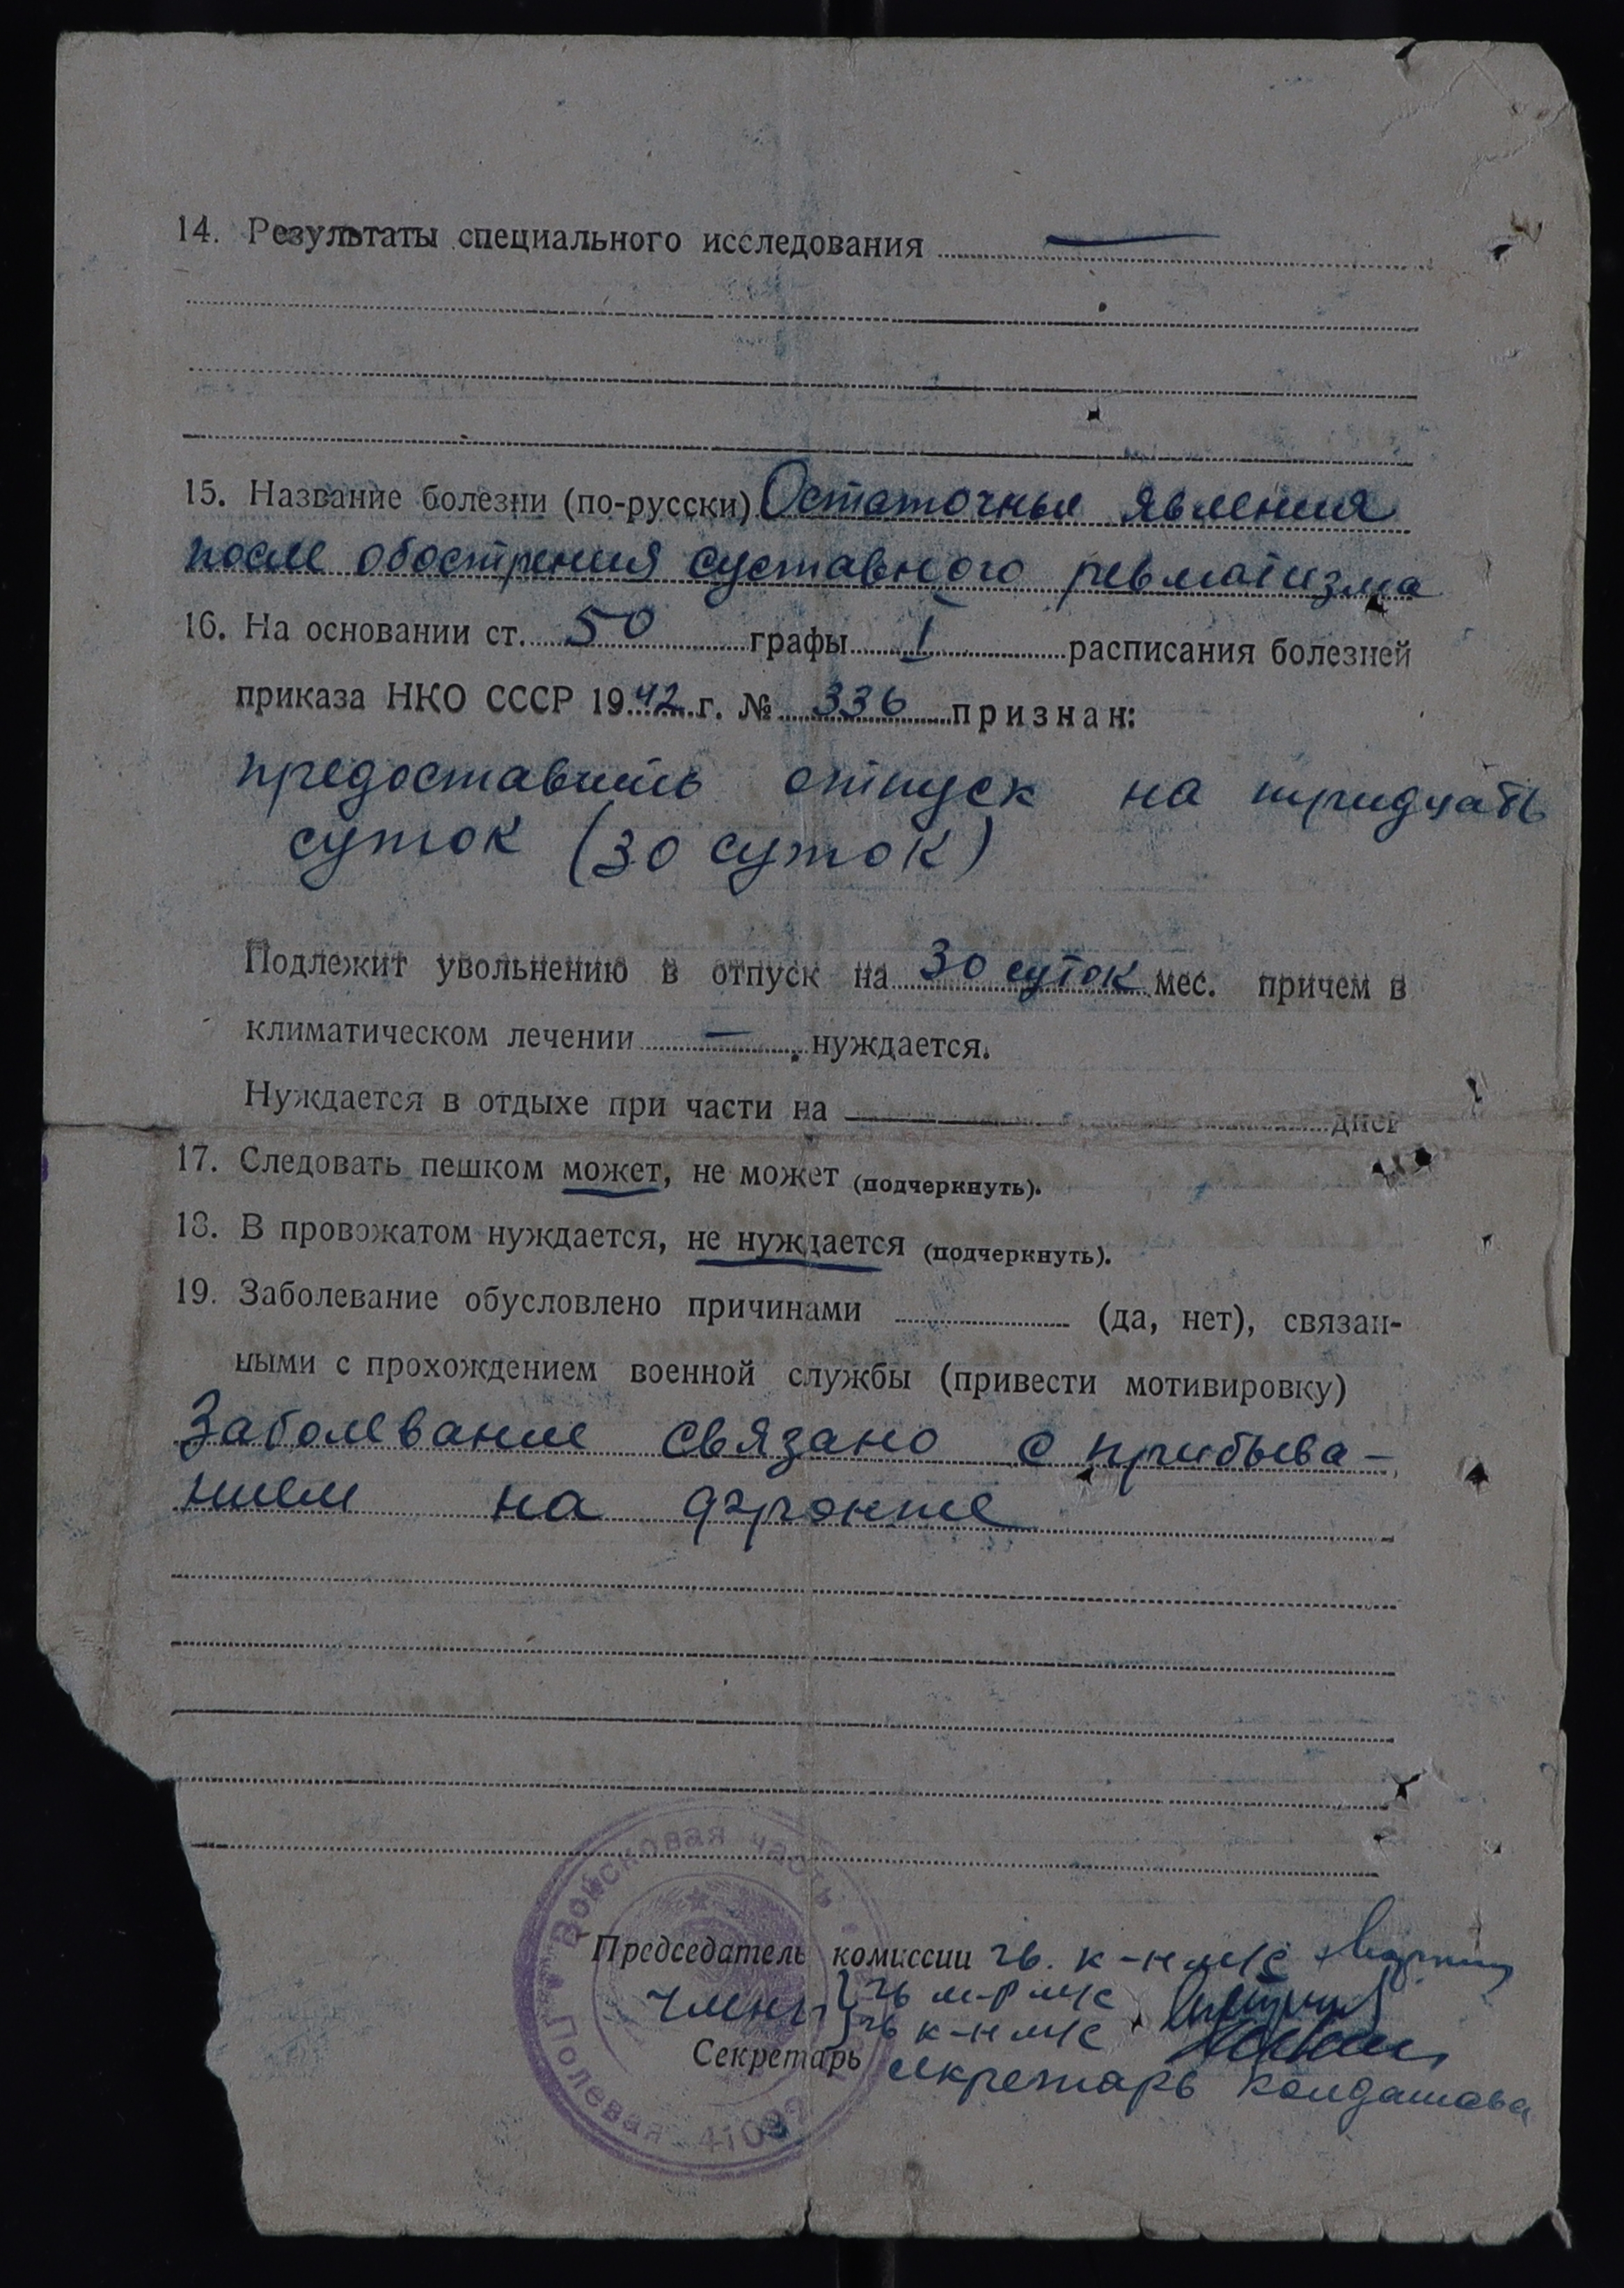 14. Результаты специального исследования —
15. Название болезни (по-русски) Остаточные явления
после обострения суставного ревматизма
16. На основании ст. 50 графы I расписания болезней
приказа НКО СССР 1942 г. № 336 признан:
предоставить отпуск на тридцать
суток (30 суток)
Подлежит увольнению в отпуск на 30 суток мес. причем в
климатическом лечении — нуждается.
Нуждается в отдыхе при части на — дней
17. Следовать пешком может, не может (подчеркнуть).
18. В провожатом нуждается, не нуждается (подчеркнуть).
19. Заболевание обусловлено причинами (да, нет), связан-
ными с прохождением военной службы (привести мотивировку)
Заболевание связано с прибыва-
нием на фронте
Войсковая часть
Председатель комиссии гв. к-н м/с
члены гв м-р м/с
гв к-н м/с
Секретарь секретарь Колдашова
Полевая